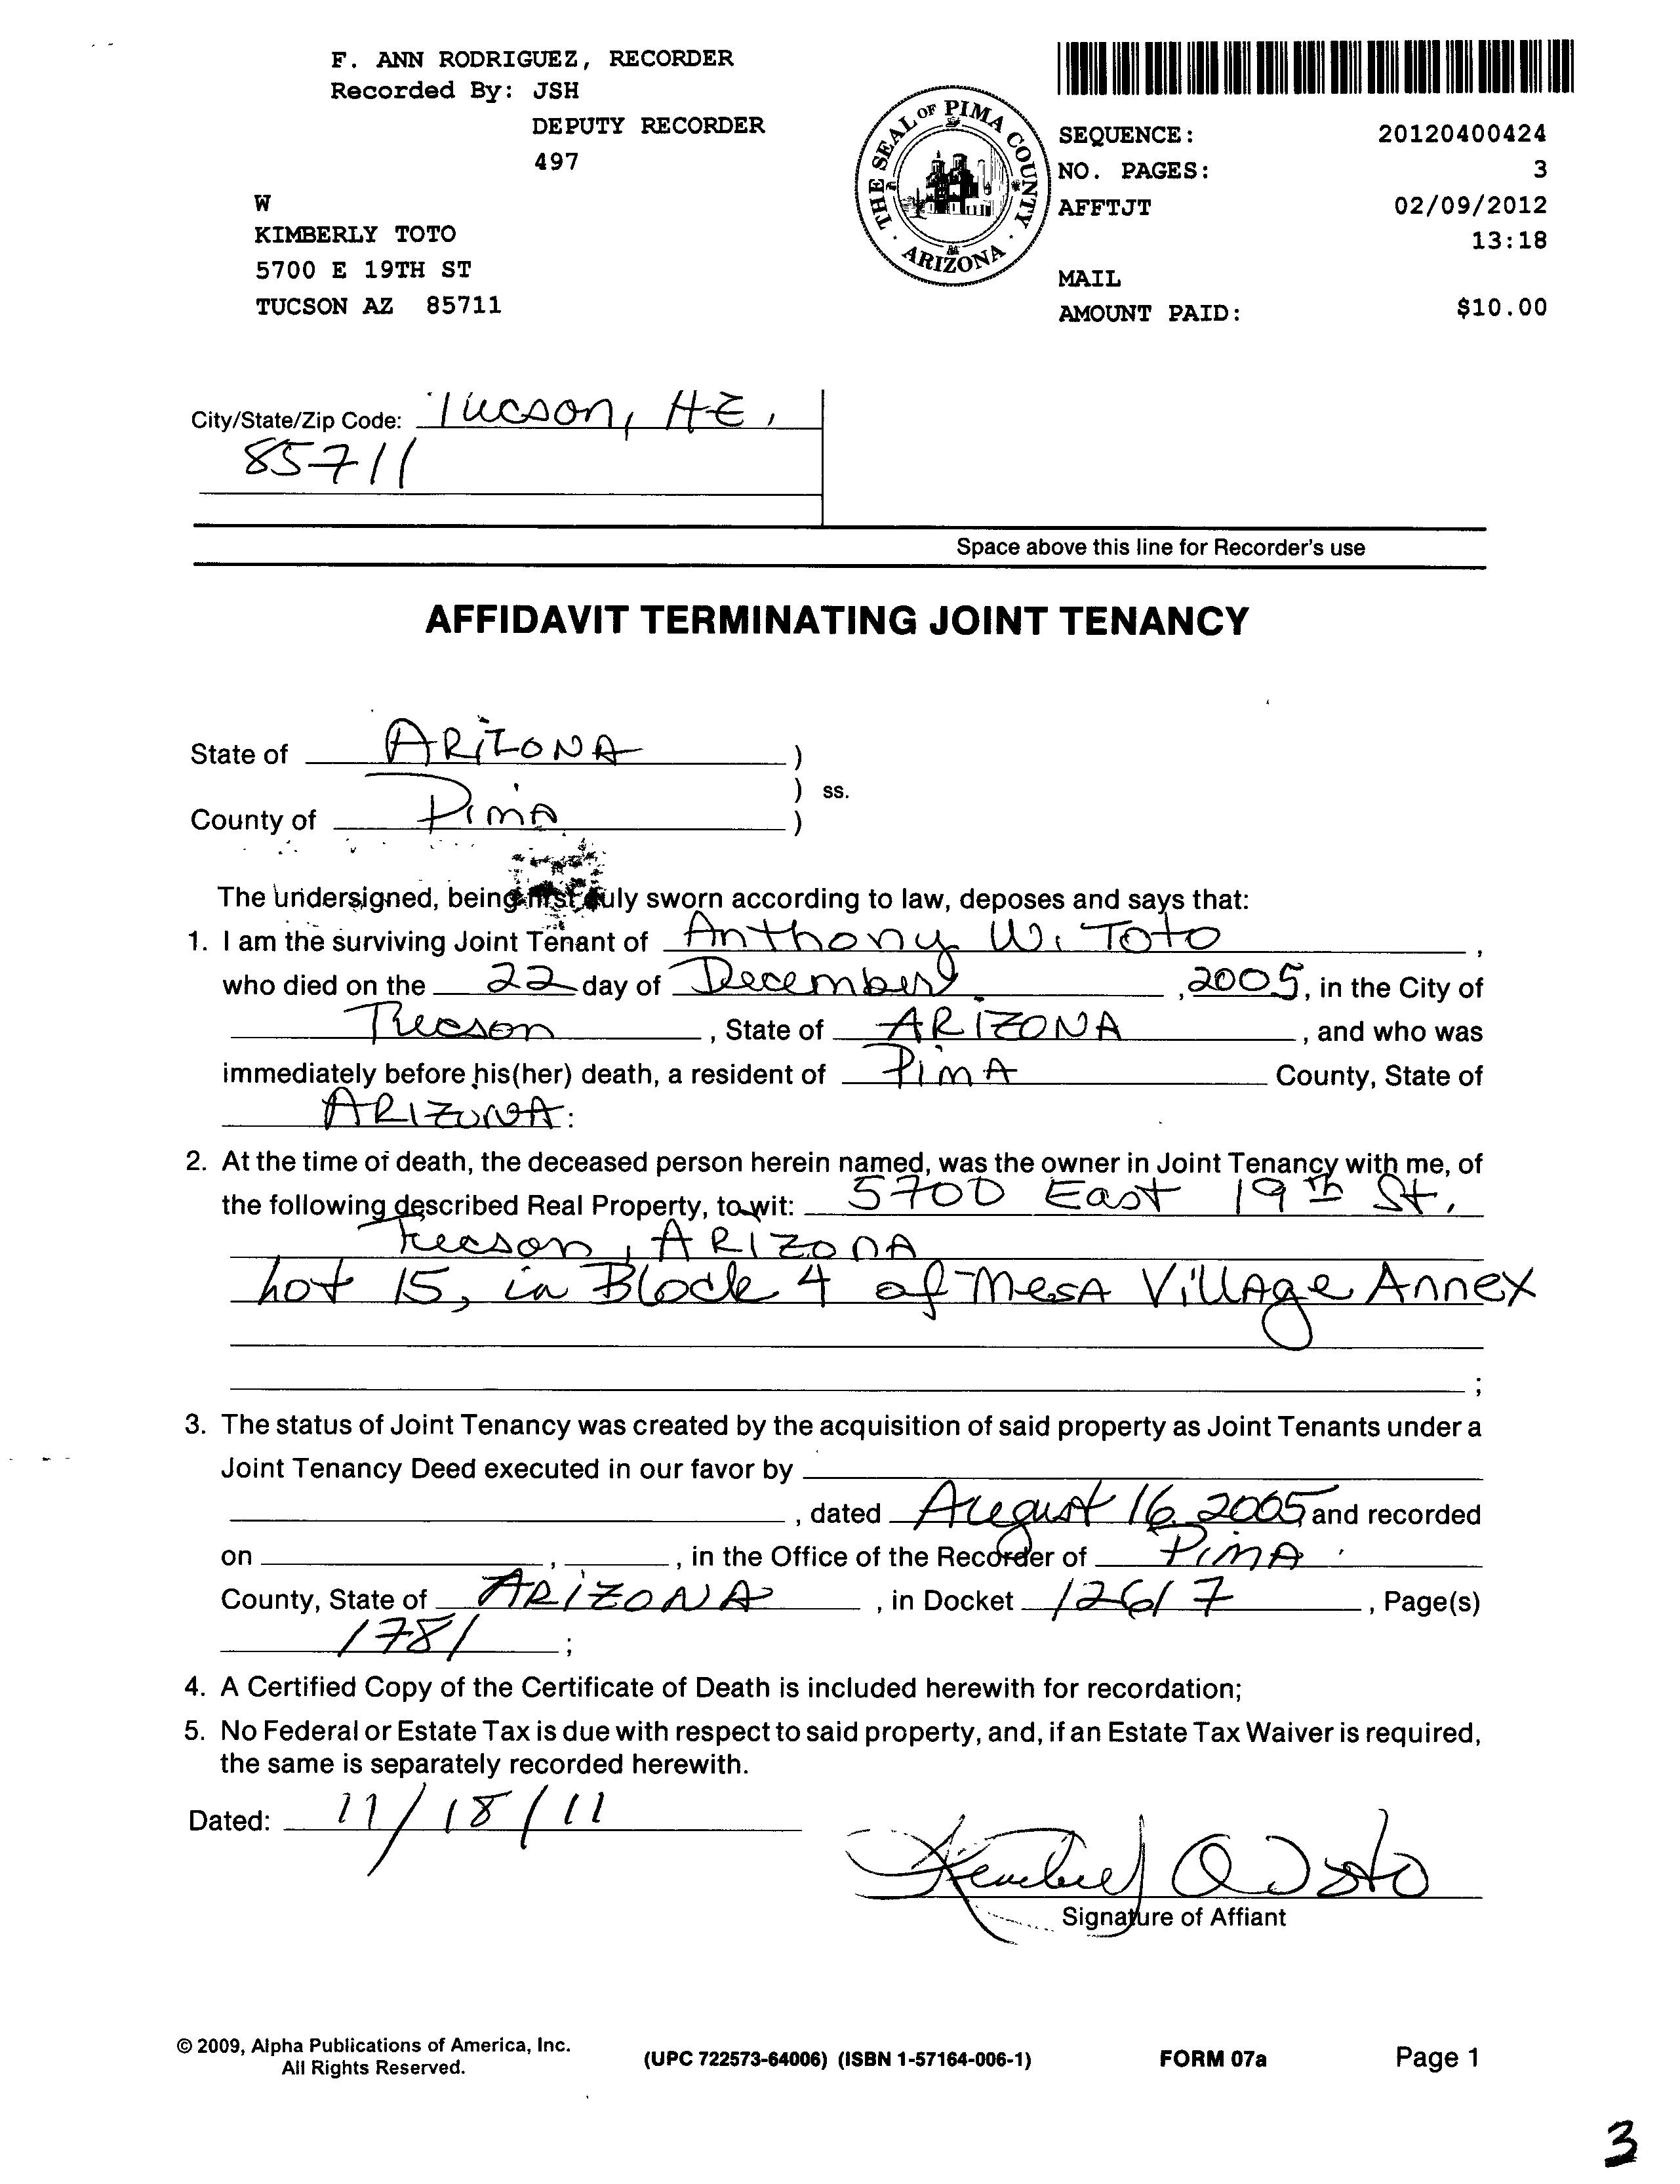 F. ANN RODRIGUEZ, RECORDER
Recorded By: JSH
DEPUTY RECORDER
497
W
KIMBERLY TOTO
5700 E 19TH ST
TUCSON AZ 85711
THE SEAL OF PIMA COUNTY
ARIZONA
SEQUENCE: 20120400424
NO. PAGES: 3
AFFTJT 02/09/2012
13:18
MAIL
AMOUNT PAID: $10.00
City/State/Zip Code: Tucson,
85711
Space above this line for Recorder's use
AFFIDAVIT TERMINATING JOINT TENANCY
State of ARIZONA )
) ss.
County of Pima )
The undersigned, being first duly sworn according to law, deposes and says that:
1. I am the surviving Joint Tenant of Anthony W. Toto ,
who died on the 22 day of December , 2005, in the City of
Tucson , State of ARIZONA , and who was
immediately before his(her) death, a resident of PimA County, State of
ARIZONA:
2. At the time of death, the deceased person herein named, was the owner in Joint Tenancy with me, of
the following described Real Property, to wit: 5700 East 19th St.
Tucson, ARIZONA
Lot 15, in Block 4 of Mesa Village Annex
;
3. The status of Joint Tenancy was created by the acquisition of said property as Joint Tenants under a
Joint Tenancy Deed executed in our favor by
, dated August 16, 2005, and recorded
on , , in the Office of the Recorder of PimA
County, State of ARIZONA , in Docket 12617 , Page(s)
1781 ;
4. A Certified Copy of the Certificate of Death is included herewith for recordation;
5. No Federal or Estate Tax is due with respect to said property, and, if an Estate Tax Waiver is required,
the same is separately recorded herewith.
Dated: 11/18/11
Kimberly A Toto
Signature of Affiant
© 2009, Alpha Publications of America, Inc.
All Rights Reserved.
(UPC 722573-64006) (ISBN 1-57164-006-1)
FORM 07a
Page 1
3